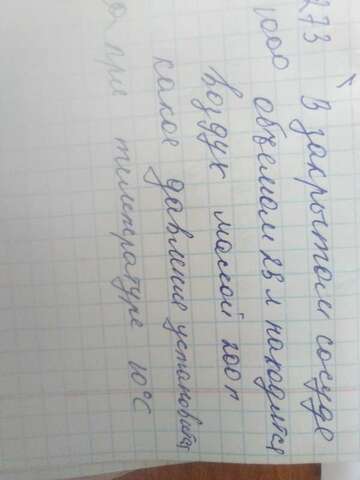 273
1000
В закрытом сосуде
объемом 23 л находится
воздух массой 200 г
какое давление установится
при температуре 10°C